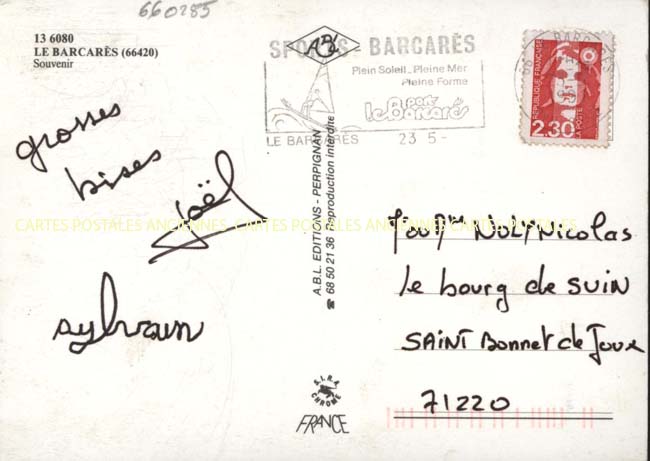 660285
13 6080
LE BARCARÈS (66420)
Souvenir
grosses
bises
Joël
sylvain
CARTES POSTALES ANCIENNES CARTES POSTALES ANCIENNES CARTES POSTALES
A.B.L. EDITIONS - PERPIGNAN
☎ 68 50 21 36 Reproduction interdite
ABL
S.I.R.A.
CHROME
FRANCE
SPORTS - BARCARÈS
Plein Soleil_Pleine Mer
Pleine Forme
port
le Barcarès
LE BARCARÈS
23 5 -
RÉPUBLIQUE FRANÇAISE
LA POSTE
2,30
Nicolas
le bourg de SUIN
SAINT Bonnet de Joux
71220